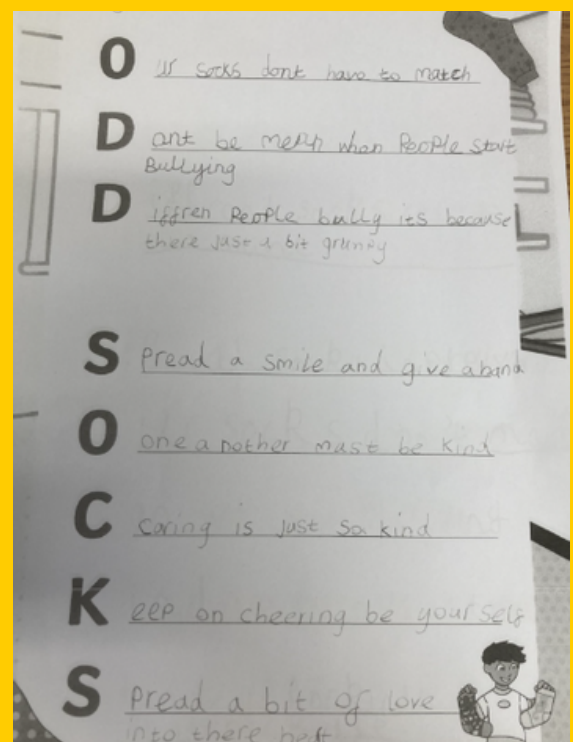 O ur socks dont have to match
D ont be mean when People start
Bullying
D iffren People bully its because
there just a bit grumpy
S Pread a smile and give a hand
O one another mast be kind
C caring is just so kind
K eep on cheering be your self
S Pread a bit of love
into there